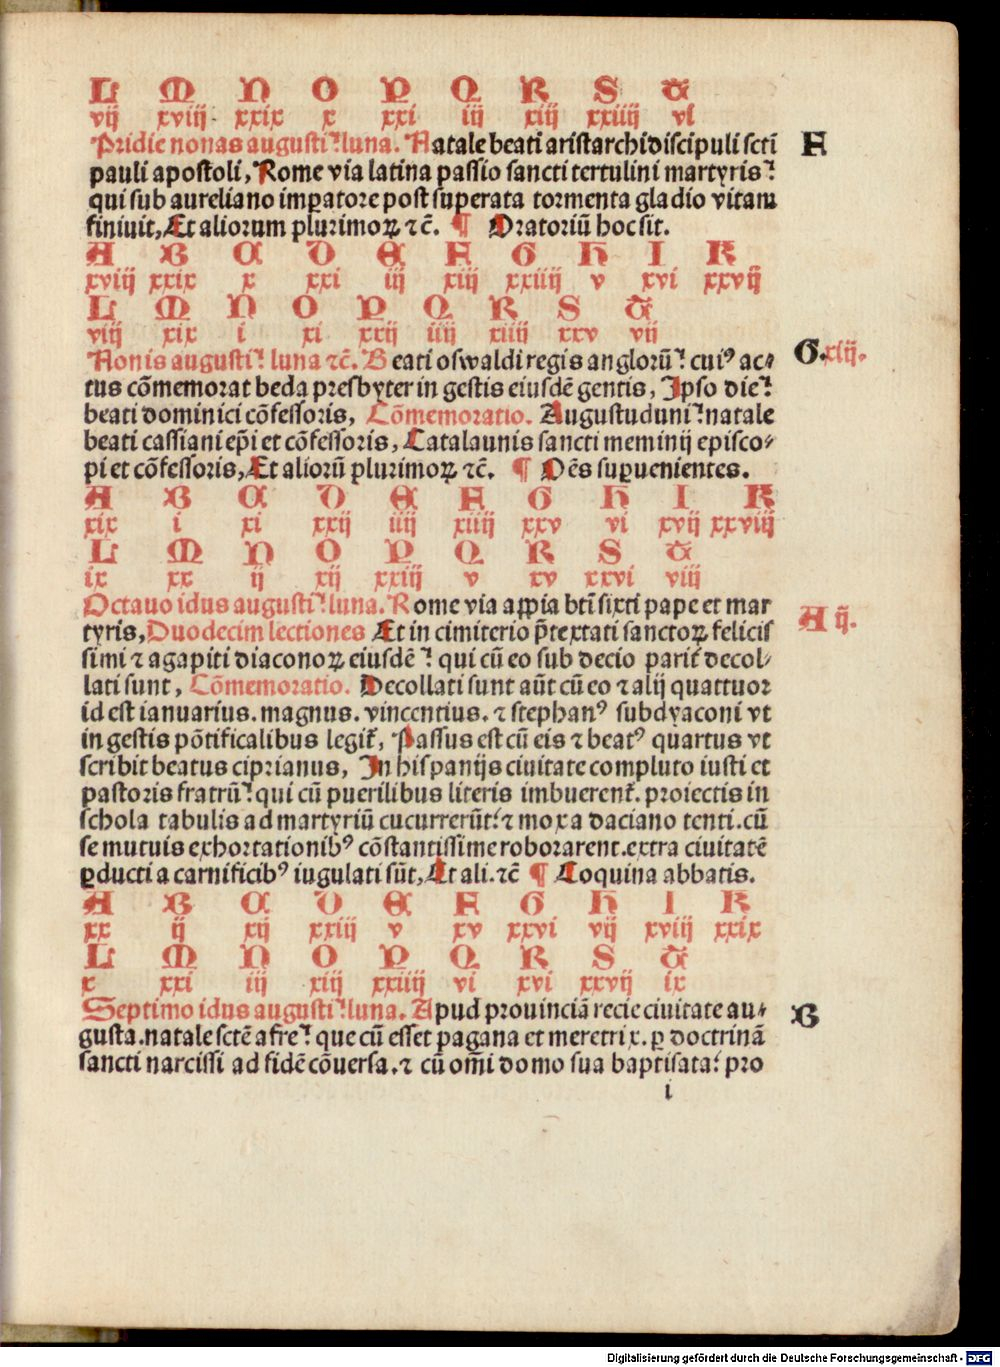 L M N O P Q R S T
vij xviij xxix x xxi iij xiij xxiiij vi
Pridie nonas augusti luna. Natale beati aristarchi discipuli scti F
pauli apostoli, Rome via latina passio sancti tertulini martyris
qui sub aureliano imꝑatore post superata tormenta gladio vitam
finiuit, Et aliorum plurimoꝝ ⁊c̄. ¶ Oratoriū hoc sit.
A B C D E F G H I K
xviij xxix x xxi iij xiij xxiiij v xvi xxvij
L M N O P Q R S T
viij xix i xi xxij iiij xiiij xxv vij
Nonis augusti luna ⁊c̄. Beati oswaldi regis anglorū cuiꝰ ac⸗ G.xlij.
tus cōmemorat beda presbyter in gestis eiusdē gentis, Ipso die
beati dominici cōfessoris, Cōmemoratio. Augustuduni natale
beati cassiani ep̄i et cōfessoris, Catalaunis sancti meminij episco⸗
pi et cōfessoris, Et aliorū plurimoꝝ ⁊c̄. ¶ Oēs suꝑuenientes.
A B C D E F G H I K
xix i xi xxij iiij xiiij xxv vi xvij xxviij
L M N O P Q R S T
ix xx ij xij xxiij v xv xxvi viij
Octauo idus augusti luna. Rome via appia bt̄i sixti pape et mar A ij.
tyris, Duodecim lectiones Et in cimiterio p̄textati sanctoꝝ felicis
simi ⁊ agapiti diaconoꝝ eiusdē qui cū eo sub decio parit̄ decol⸗
lati sunt, Cōmemoratio. Decollati sunt aūt cū eo ⁊ alij quattuor
id est ianuarius. magnus. vincentius. ⁊ stephanꝰ subdyaconi vt
in gestis pōtificalibus legit̄, Passus est cū eis ⁊ beatꝰ quartus vt
scribit beatus ciprianus, In hispanijs ciuitate compluto iusti et
pastoris fratrū qui cū puerilibus literis imbuerent̄. proiectis in
schola tabulis ad martyriū cucurrerūt ⁊ mox a daciano tenti. cū
se mutuis exhortationibꝰ cōstantissime roborarent. extra ciuitatē
ꝑducti a carnificibꝰ iugulati sūt, Et ali. ⁊c̄ ¶ Coquina abbatis.
A B C D E F G H I K
xx ij xij xxiij v xv xxvi vij xviij xxix
L M N O P Q R S T
x xxi iij xiij xxiiij vi xvi xxvij ix
Septimo idus augusti luna. Apud prouinciā recie ciuitate au⸗ B
gusta. natale sctē afre que cū esset pagana et meretrix. ꝑ doctrinā
sancti narcissi ad fidē cōuersa. ⁊ cū om̄i domo sua baptisata pro
i
Digitalisierung gefördert durch die Deutsche Forschungsgemeinschaft - DFG